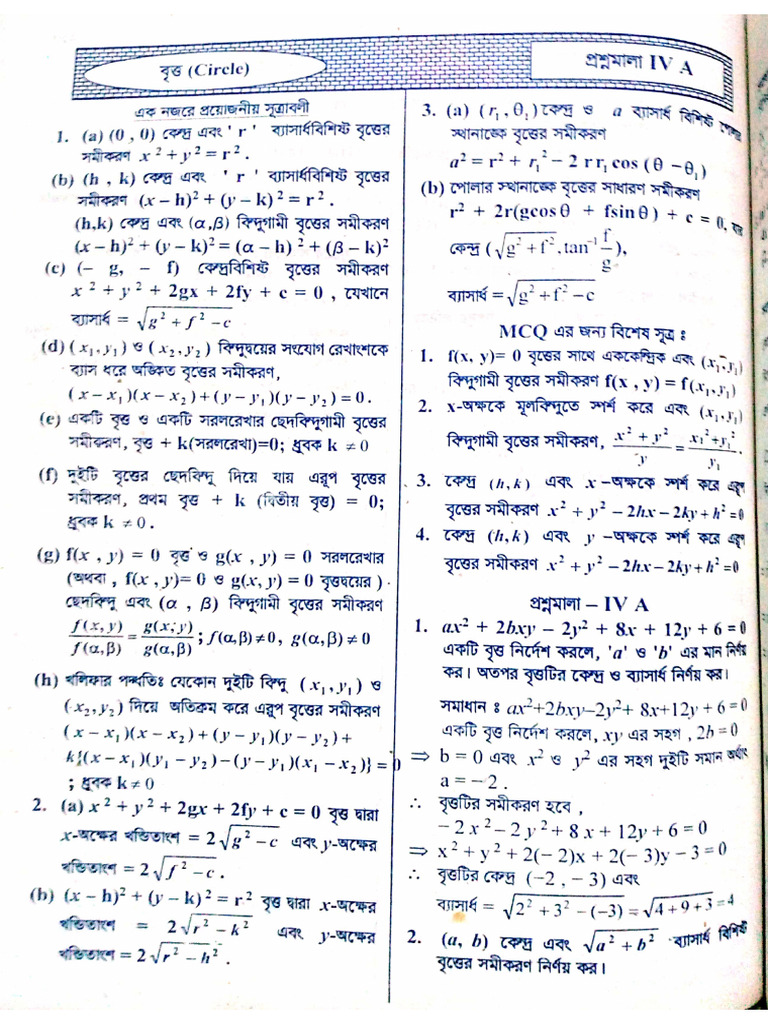 বৃত্ত (Circle)
প্রশ্নমালা IV A
এক নজরে প্রয়োজনীয় সূত্রাবলী
1. (a) (0 , 0) কেন্দ্র এবং ' r ' ব্যাসার্ধবিশিষ্ট বৃত্তের
সমীকরণ x² + y² = r² .
(b) (h , k) কেন্দ্র এবং ' r ' ব্যাসার্ধবিশিষ্ট বৃত্তের
সমীকরণ (x – h)² + (y – k)² = r² .
(h,k) কেন্দ্র এবং (α,β) বিন্দুগামী বৃত্তের সমীকরণ
(x – h)² + (y – k)² = (α – h)² + (β – k)²
(c) (– g, – f) কেন্দ্রবিশিষ্ট বৃত্তের সমীকরণ
x² + y² + 2gx + 2fy + c = 0 , যেখানে
ব্যাসার্ধ = √(g² + f² – c)
(d) (x₁, y₁) ও (x₂, y₂) বিন্দুদ্বয়ের সংযোগ রেখাংশকে
ব্যাস ধরে অঙ্কিত বৃত্তের সমীকরণ,
(x – x₁)(x – x₂) + (y – y₁)(y – y₂) = 0 .
(e) একটি বৃত্ত ও একটি সরলরেখার ছেদবিন্দুগামী বৃত্তের
সমীকরণ, বৃত্ত + k(সরলরেখা)=0; ধ্রুবক k ≠ 0
(f) দুইটি বৃত্তের ছেদবিন্দু দিয়ে যায় এরূপ বৃত্তের
সমীকরণ, প্রথম বৃত্ত + k (দ্বিতীয় বৃত্ত) = 0;
ধ্রুবক k ≠ 0 .
(g) f(x , y) = 0 বৃত্ত ও g(x , y) = 0 সরলরেখার
(অথবা , f(x , y)= 0 ও g(x, y) = 0 বৃত্তদ্বয়ের )
ছেদবিন্দু এবং (α , β) বিন্দুগামী বৃত্তের সমীকরণ
f(x, y)/f(α,β) = g(x, y)/g(α,β) ; f(α,β) ≠ 0, g(α,β) ≠ 0
(h) খলিফার পদ্ধতিঃ যেকোন দুইটি বিন্দু (x₁, y₁) ও
(x₂, y₂) দিয়ে অতিক্রম করে এরূপ বৃত্তের সমীকরণ
(x – x₁)(x – x₂) + (y – y₁)(y – y₂) +
k{(x – x₁)(y₁ – y₂) – (y – y₁)(x₁ – x₂)} = 0
; ধ্রুবক k ≠ 0
2. (a) x² + y² + 2gx + 2fy + c = 0 বৃত্ত দ্বারা
x-অক্ষের খন্ডিতাংশ = 2√(g² – c) এবং y-অক্ষের
খন্ডিতাংশ = 2√(f² – c) .
(b) (x – h)² + (y – k)² = r² বৃত্ত দ্বারা x-অক্ষের
খন্ডিতাংশ = 2√(r² – k²) এবং y-অক্ষের
খন্ডিতাংশ = 2√(r² – h²) .
3. (a) (r₁ , θ₁) কেন্দ্র ও a ব্যাসার্ধ বিশিষ্ট পোলার
স্থানাঙ্কে বৃত্তের সমীকরণ
a² = r² + r₁² – 2 r r₁ cos (θ – θ₁)
(b) পোলার স্থানাঙ্কে বৃত্তের সাধারণ সমীকরণ
r² + 2r(gcos θ + fsin θ) + c = 0, যার
কেন্দ্র (√(g² + f²), tan⁻¹ f/g),
ব্যাসার্ধ = √(g² + f² – c)
MCQ এর জন্য বিশেষ সূত্র ঃ
1. f(x, y)= 0 বৃত্তের সাথে এককেন্দ্রিক এবং (x₁, y₁)
বিন্দুগামী বৃত্তের সমীকরণ f(x , y) = f(x₁, y₁)
2. x-অক্ষকে মূলবিন্দুতে স্পর্শ করে এবং (x₁, y₁)
বিন্দুগামী বৃত্তের সমীকরণ, (x² + y²)/y = (x₁² + y₁²)/y₁ .
3. কেন্দ্র (h, k) এবং x –অক্ষকে স্পর্শ করে এরূপ
বৃত্তের সমীকরণ x² + y² – 2hx – 2ky + h² = 0
4. কেন্দ্র (h, k) এবং y –অক্ষকে স্পর্শ করে এরূপ
বৃত্তের সমীকরণ x² + y² – 2hx – 2ky + h² = 0
প্রশ্নমালা – IV A
1. ax² + 2bxy – 2y² + 8x + 12y + 6 = 0
একটি বৃত্ত নির্দেশ করলে, 'a' ও 'b' এর মান নির্ণয়
কর। অতপর বৃত্তটির কেন্দ্র ও ব্যাসার্ধ নির্ণয় কর।
সমাধান ঃ ax²+2bxy–2y²+ 8x+12y + 6 = 0
একটি বৃত্ত নির্দেশ করলে, xy এর সহগ , 2b = 0
⇒ b = 0 এবং x² ও y² এর সহগ দুইটি সমান অর্থাৎ
a = – 2 .
∴ বৃত্তটির সমীকরণ হবে ,
– 2 x² – 2 y² + 8 x + 12y + 6 = 0
⇒ x² + y² + 2(– 2)x + 2(– 3)y – 3 = 0
∴ বৃত্তটির কেন্দ্র (–2 , – 3) এবং
ব্যাসার্ধ = √(2² + 3² – (–3)) = √(4 + 9 + 3) = 4
2. (a, b) কেন্দ্র এবং √(a² + b²) ব্যাসার্ধ বিশিষ্ট
বৃত্তের সমীকরণ নির্ণয় কর।